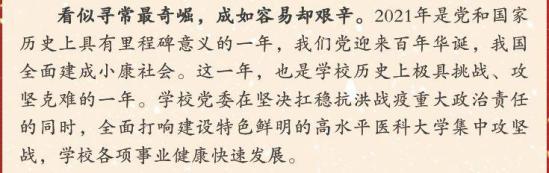 看似寻常最奇崛，成如容易却艰辛。2021年是党和国家
历史上具有里程碑意义的一年，我们党迎来百年华诞，我国
全面建成小康社会。这一年，也是学校历史上极具挑战、攻
坚克难的一年。学校党委在坚决扛稳抗洪战疫重大政治责任
的同时，全面打响建设特色鲜明的高水平医科大学集中攻坚
战，学校各项事业健康快速发展。